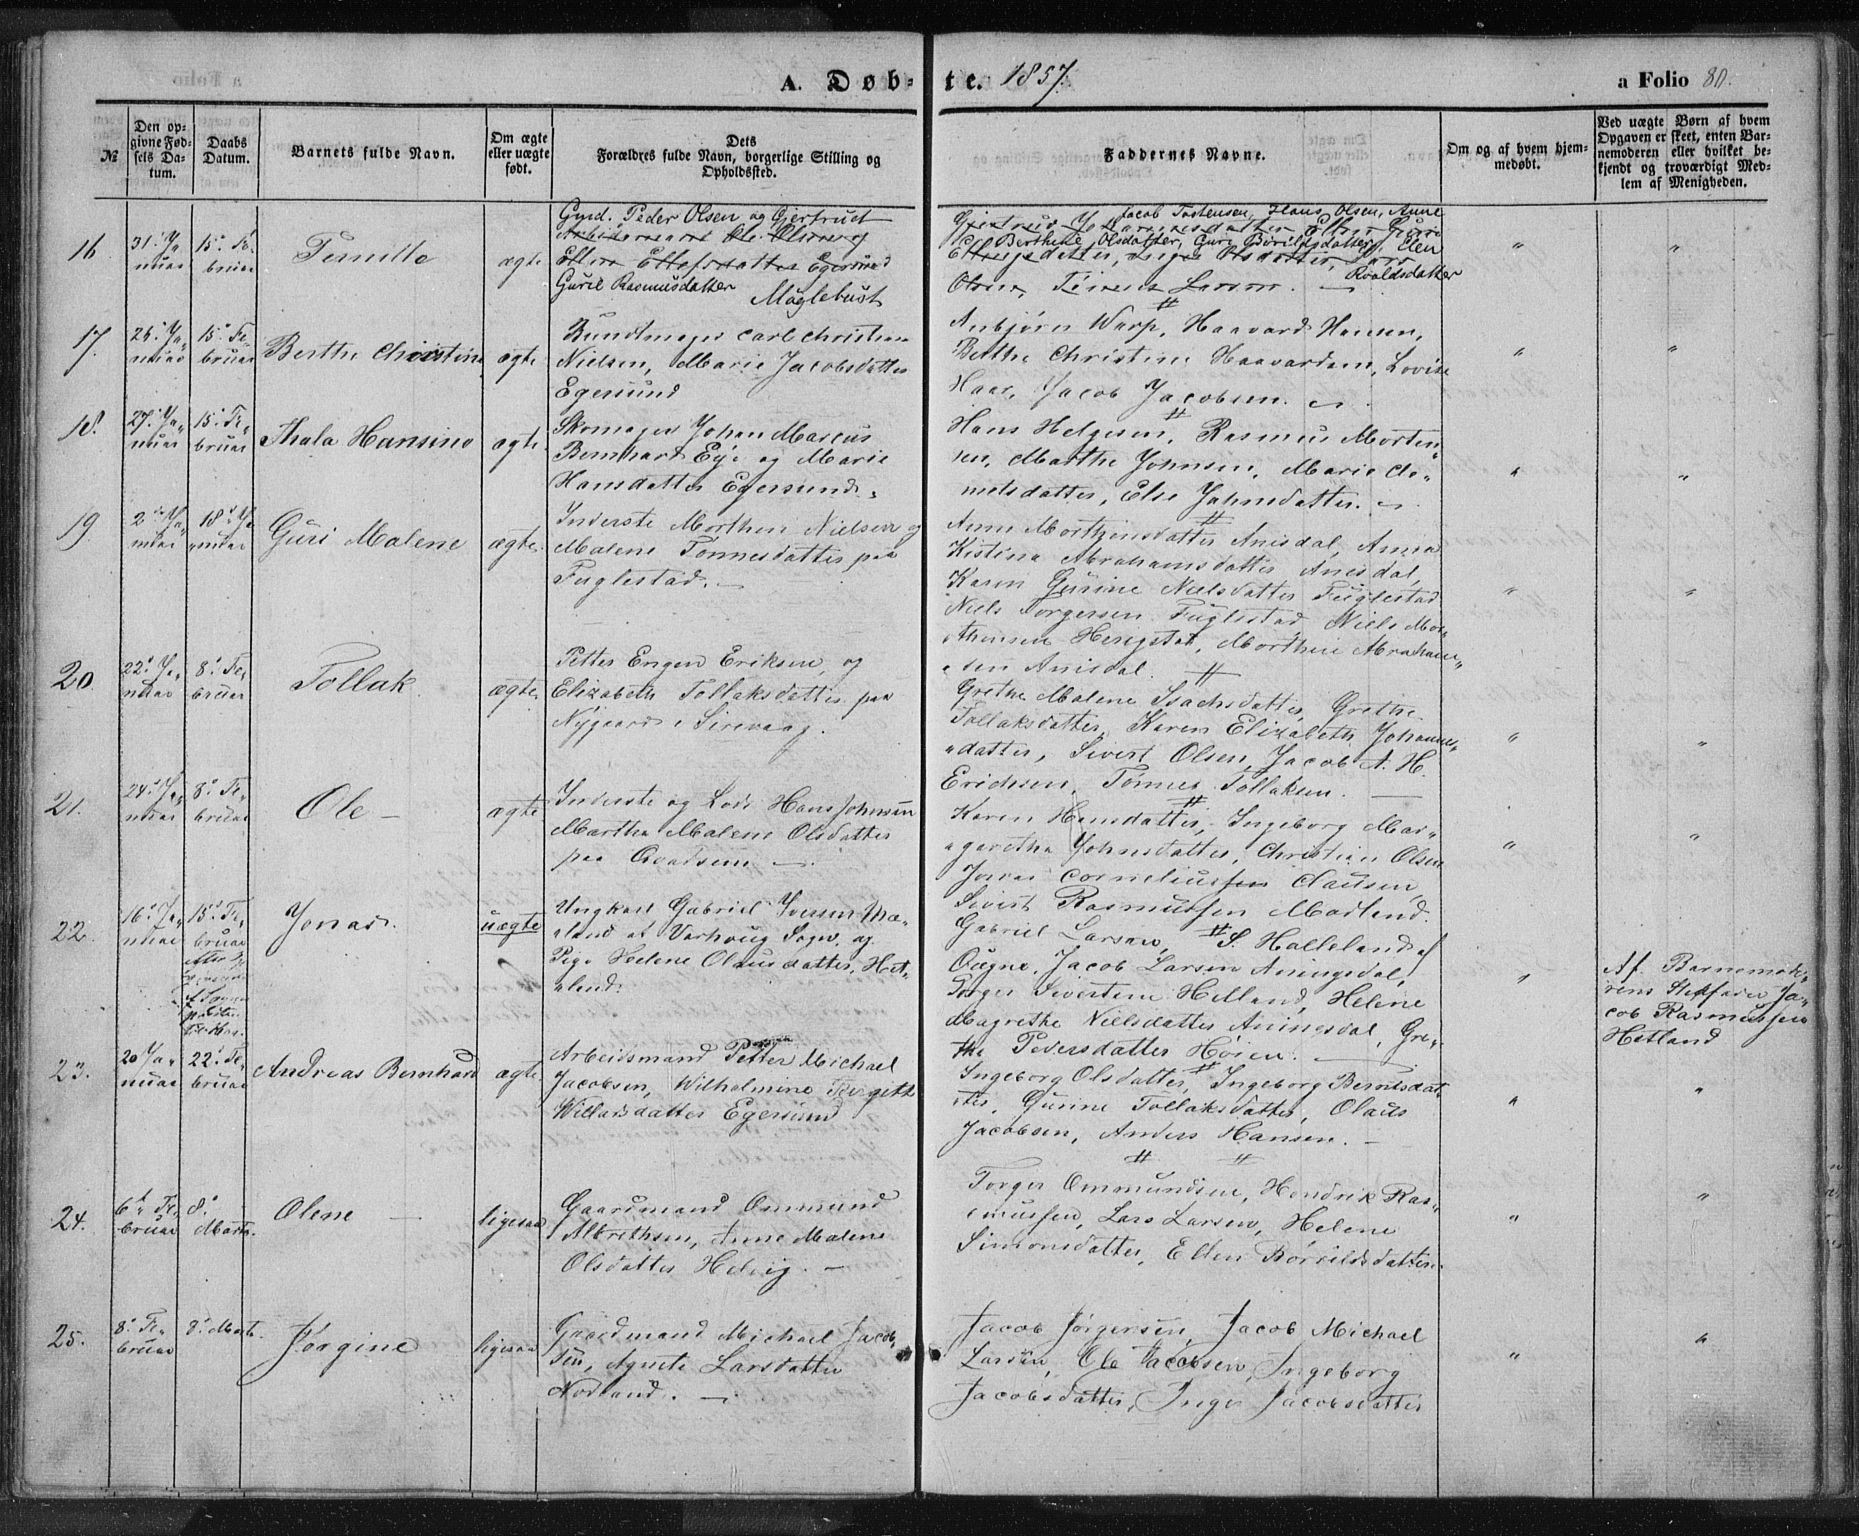 A. Døb- te. 1857. a Folio 80.
№
Den op-
givne Fød-
sels Da-
tum.
Daabs
Datum.
Barnets fulde Navn.
Om ægte
eller uægte
født.
Dets
Forældres fulde Navn, borgerlige Stilling og
Opholdssted.
Faddernes Navne.
Om og af hvem hjem-
medøbt.
Ved uægte Børn af hvem
Opgaven er skeet, enten Bar-
nemoderen eller hvilket be-
kjendt og troværdigt Med-
lem af Menigheden.
16
31. Ja-
nuar
15. Fe-
bruar
Pernille
ægte
Gmd. Peder Olsen og Gjertrud
Arbeidsmand Ole Olsen og
Ellen Ellefsdatter Egersund
Guril Rasmusdatter Møglebust
Jacob Tostensen, Hans Olsen, Anne
Berthine Olsdatter, Guri Børildsdatter, Elen
Roaldsdatter
Olsen, Larsen. —
" "
17.
25. Ja-
nuar
15. Fe-
bruar
Berthe Christine
ægte
Bundtmager Carl Christian
Nielsen, Marie Jacobsdatter
Egersund
Anbjørn Warp, Haavard Hansen,
Berthe Christine Haavardsen, Lovise
Haar, Jacob Jacobsen.
" "
18.
27. Ja-
nuar
15. Fe-
bruar
Thala Hansine
ægte
Skomager Johan Marcus
Bernhart Eje og Marie
Hansdatter Egersund.
Hans Helgesen, Rasmus Morten-
sen, Marthe Johnsen, Marie Co-
nelsdatter, Else Johnsdatter.
" "
19.
2. Ja-
nuar
18. Ja-
nuar
Guri Malene
ægte.
Inderste Morthen Nielsen og
Malene Tønnesdatter paa
Fuglestad. —
Anne Morthensdatter Anisdal, Anne
Kistina Abrahamsdatter Anisdal,
Karen Gurine Nielsdatter Fuglestad
Niels Torgersen Fuglestad, Niels Mor-
thensen Herigstad, Morthen Abraham-
sen Anisdal.
" "
20.
22. Ja-
nuar
8. Fe-
bruar
Tollak.
ægte.
Petter Engen Eriksen, og
Elizabeth Tollaksdatter paa
Nygaard i Sirevaag.
Grethe Malene Isachsdatter, Grethe
Tollaksdatter, Karen Elizabeth Johann-
datter, Sivert Olsen, Jacob A. H.
Erichsen, Tønnes Tollaksen. —
" "
21.
24. Ja-
nuar
8. Fe-
bruar
Ole —
ægte
Inderste og Lods Hans Johnsen
Martha Malene Olsdatter
paa Qvadsem —.
Karen Hansdatter, Ingeborg Mar-
garetha Johnsdatter, Christian Olsen
Jonas Corneliussen Clausen,
Sivert Rasmussen Madland.
" "
22.
16. Ja-
nuar
15. Fe-
bruar
Jonas.
uægte
Ungkarl Gabriel Iversen Mæ-
land af Varhoug Sogn, og
Pige Helene Olausdatter, Het-
land.
Gabriel Larsen, S. Halleland af
Ougne, Jacob Larsen Aningsdal,
Torger Sivertsen Helland, Helene
Magrethe Nielsdatter Aningsdal, Gre-
the Pedersdatter Høien. —
"
Af Barnemod-
rens Stiffader Ja-
cob Rasmussen
Hetland
23.
20 Ja-
nuar
22. Fe-
bruar
Andreas Bernhard
ægte.
Arbeidsmand Petter Michael
Jacobsen, Wilhelmine Birgitte
Willasdatter Egersund
Ingeborg Olsdatter, Ingeborg Berntsdat-
ter, Gurine Tollaksdatter, Olaus
Jacobsen, Anders Hansen. —
" "
24.
6. Fe-
bruar
8.
Marts.
Olene —
ligesaa
Gaardmand Ommund
Albrethsen, Anne Malene
Olsdatter Helvig. —
Torger Ommundsen, Hendrik Ras-
mussen, Lars Larsen, Helene
Simonsdatter, Ellen Børrildsdatter.
" "
25.
8. Fe-
bruar
8. Marts.
Jørgine
ligesaa
Gaardmand Michael Jacob-
sen, Agnete Larsdatter
Nodland. —
Jacob Jørgensen, Jacob Michael
Larsen, Ole Jacobsen, Ingeborg
Jacobsdatter, Inger Jacobsdatter
" "